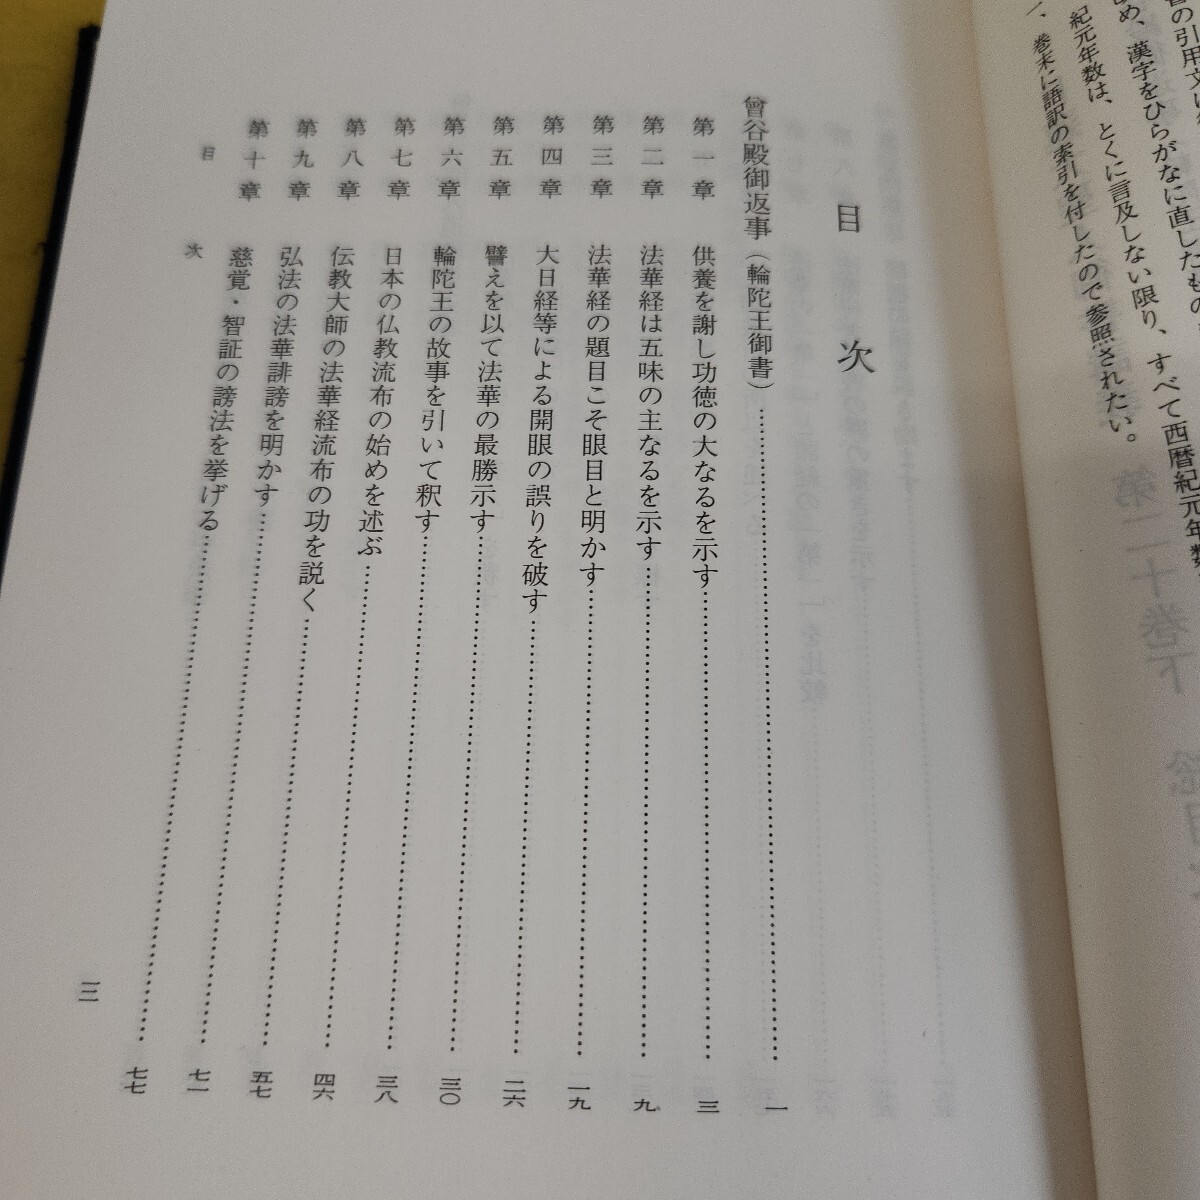 紀元年数は、とくに言及しない限り、すべて西暦紀元年数
一、巻末に語訳の索引を付したので参照されたい。
目次
曾谷殿御返事（輪陀王御書）……一
第一章 供養を謝し功徳の大なるを示す……三
第二章 法華経は五味の主なるを示す……九
第三章 法華経の題目こそ眼目と明かす……一九
第四章 大日経等による開眼の誤りを破す……二六
第五章 譬えを以て法華の最勝示す……三〇
第六章 輪陀王の故事を引いて釈す……三八
第七章 日本の仏教流布の始めを述ぶ……四六
第八章 伝教大師の法華経流布の功を説く……五七
第九章 弘法の法華誹謗を明かす……七一
第十章 慈覚・智証の謗法を挙げる……七七
目次
三